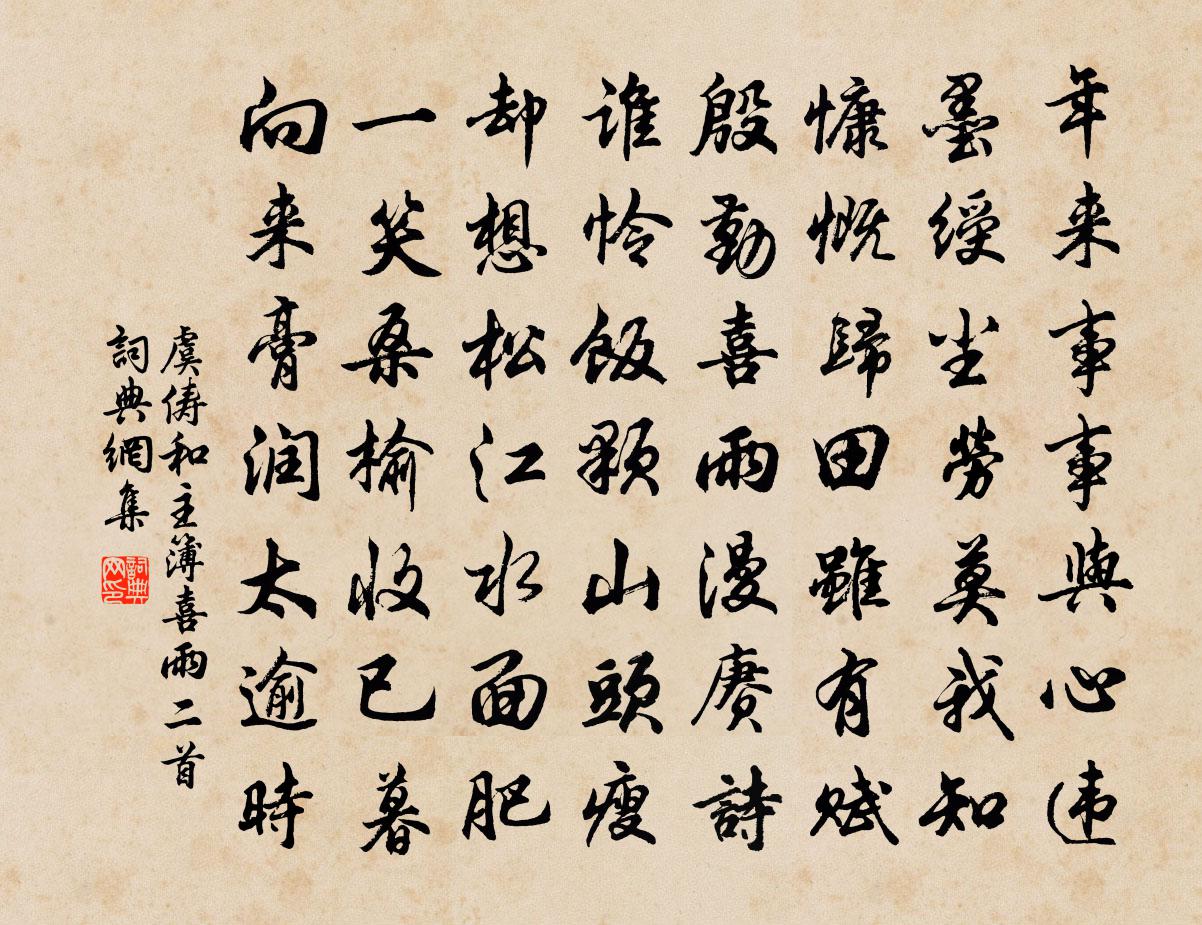 年来事事與心违
墨綬尘勞莫我知
慷慨歸田雖有赋
殷勤喜雨漫赓詩
谁怜飯顆山頭瘦
却想松江水面肥
一笑桑榆收已暮
向来膏润太逾時
虞俦和主簿喜雨二首
詞典網集
詞典网印